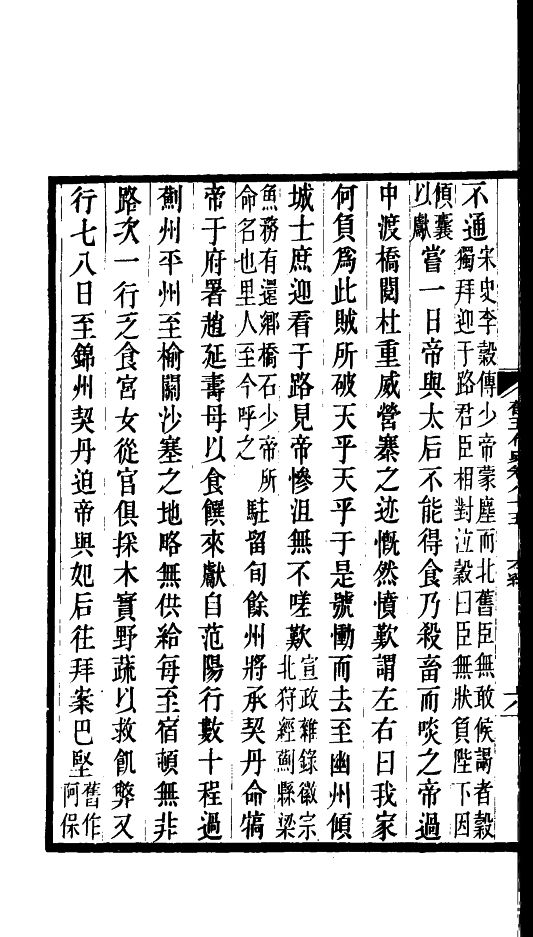 不通宋史李穀傳少帝蒙塵而北舊臣無敢候謁者穀獨拜迎于路君臣相對泣穀曰臣無狀負陛下因
傾囊以獻嘗一日帝與太后不能得食乃殺畜而啖之帝過
中渡橋閱杜重威營寨之迹慨然憤歎謂左右曰我家
何負爲此賊所破天乎天乎于是號慟而去至幽州傾
城士庶迎看于路見帝慘沮無不嗟歎宣政雜錄徽宗北狩經薊縣梁
魚務有還鄉橋石少帝所命名也里人至今呼之駐留旬餘州將承契丹命犒
帝于府署趙延壽母以食饌來獻自范陽行數十程過
薊州平州至榆關沙塞之地略無供給每至宿頓無非
路次一行乏食宮女從官俱採木實野蔬以救飢弊又
行七八日至錦州契丹迫帝與妃后往拜案巴堅舊作阿保